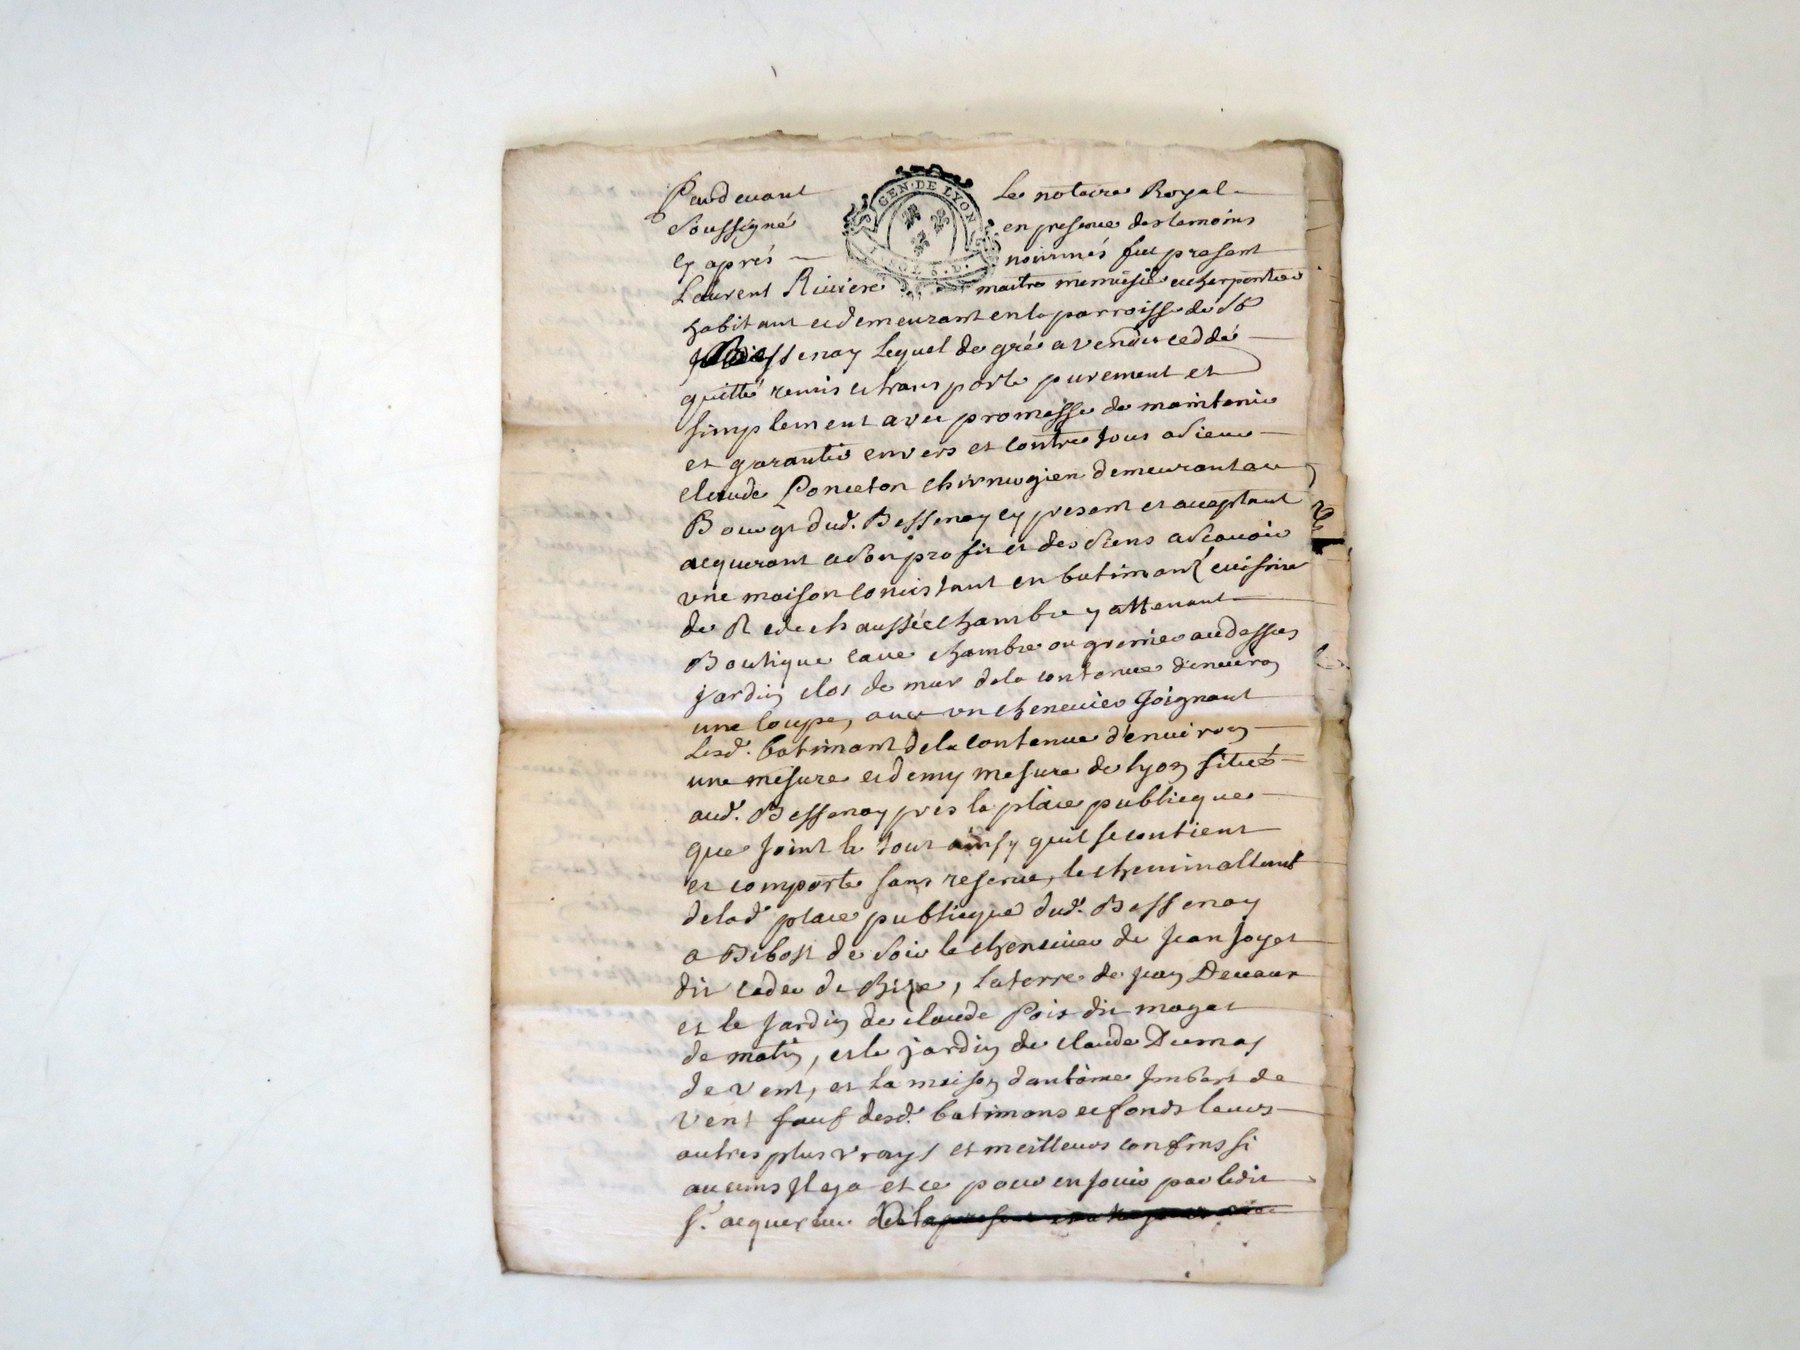 GEN·DE LYON
Pardevant Le notaire Royal
Soussigné en presence des temoins
cy aprés nommés fut present
Laurent Riviere maitre menuisie et charpentier
habitant et demeurant en la parroisse de
Bessenay Lequel de gré a vendu ceddé
quitté remis et transporte purement et
simplement avec promesse de maintenir
et garantir envers et contre tous a Sieur
claude Ponceton chirurgien demeurant au
Bourgt dud. Bessenay cy present et acceptant
acquerant a Son profit et des Siens a Scavoir
vne maison consistant en batimant cuisine
de R de chaussée chambre y attenant
Boutique cave chambre ou grenier au dessus
jardin clos de mur de la contenue denviron
une coupe, avec vn chenevier Joignant
Lesd. batimant de la contenue denviron
une mesure et demy mesure de lyon située
aud. Bessenay pres la place publicque
que joint le tout ainsy quil se contient
et comporte sans reserve, le chemin allant
de lad. place publicque dud. Bessenay
a Bibost de Soir le chenevier de Jean Joyet
dit de Bize, La terre de Jean Devaux
et le Jardin de claude Pois dit
de matin, et le jardin de claude Dumas
de vent, et La maison dantoine Jmbert de
vent sauf desd. batimans et fonds leurs
autres plus vrays et meilleurs confins si
aucuns Jl y a et ce pour en Jouir par ledit
Sr. acquereur